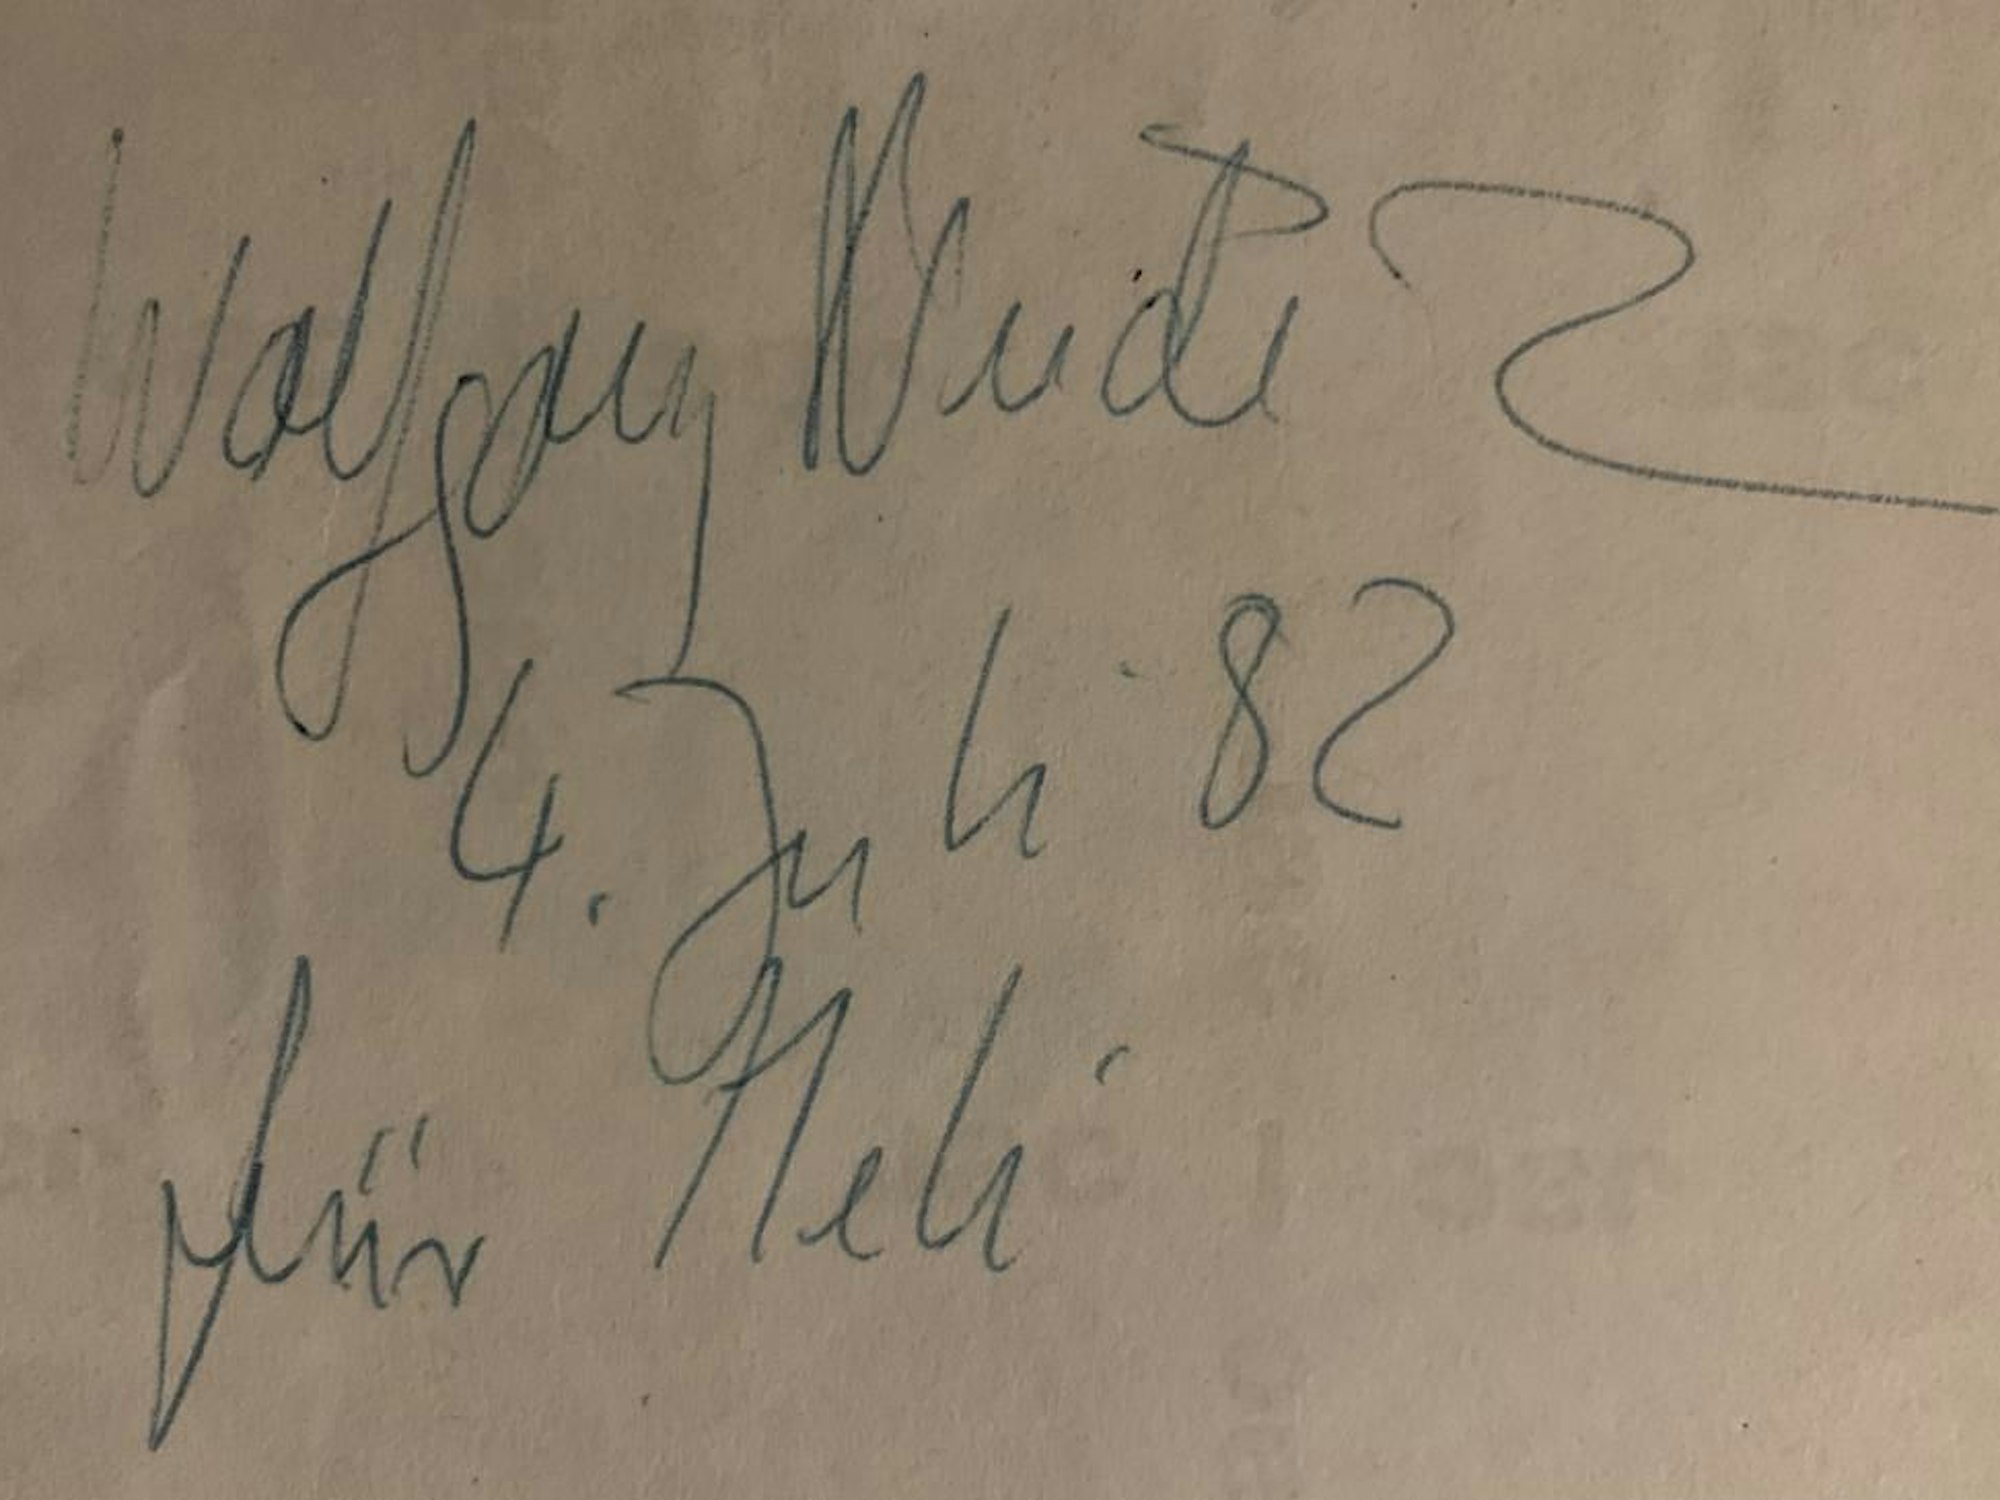 Wolfgang
4. Juli 82
für Heli